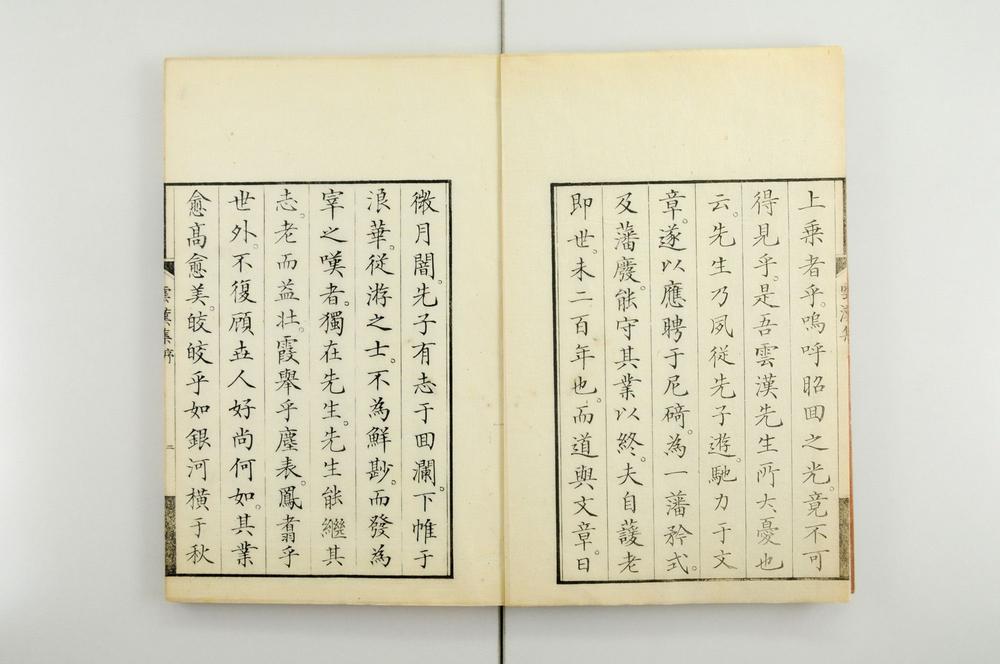 上乗者乎。嗚呼昭回之光。竟不可
得見乎。是吾雲漢先生所大憂也
云。先生乃夙從先子遊。馳力于文
章。遂以應聘于尼碕。為一藩矜式。
及藩廢。能守其業以終。夫自蘐老
即世。未二百年也。而道與文章。日
微月闇。先子有志于回瀾。下帷于
浪華。從游之士。不為鮮尠。而發為
宰之嘆者。獨在先生。先生能繼其
志。老而益壯。霞舉乎塵表。鳳翥乎
世外。不復顧卋人好尚何如。其業
愈高愈美。皎皎乎如銀河橫于秋
雲漢集序